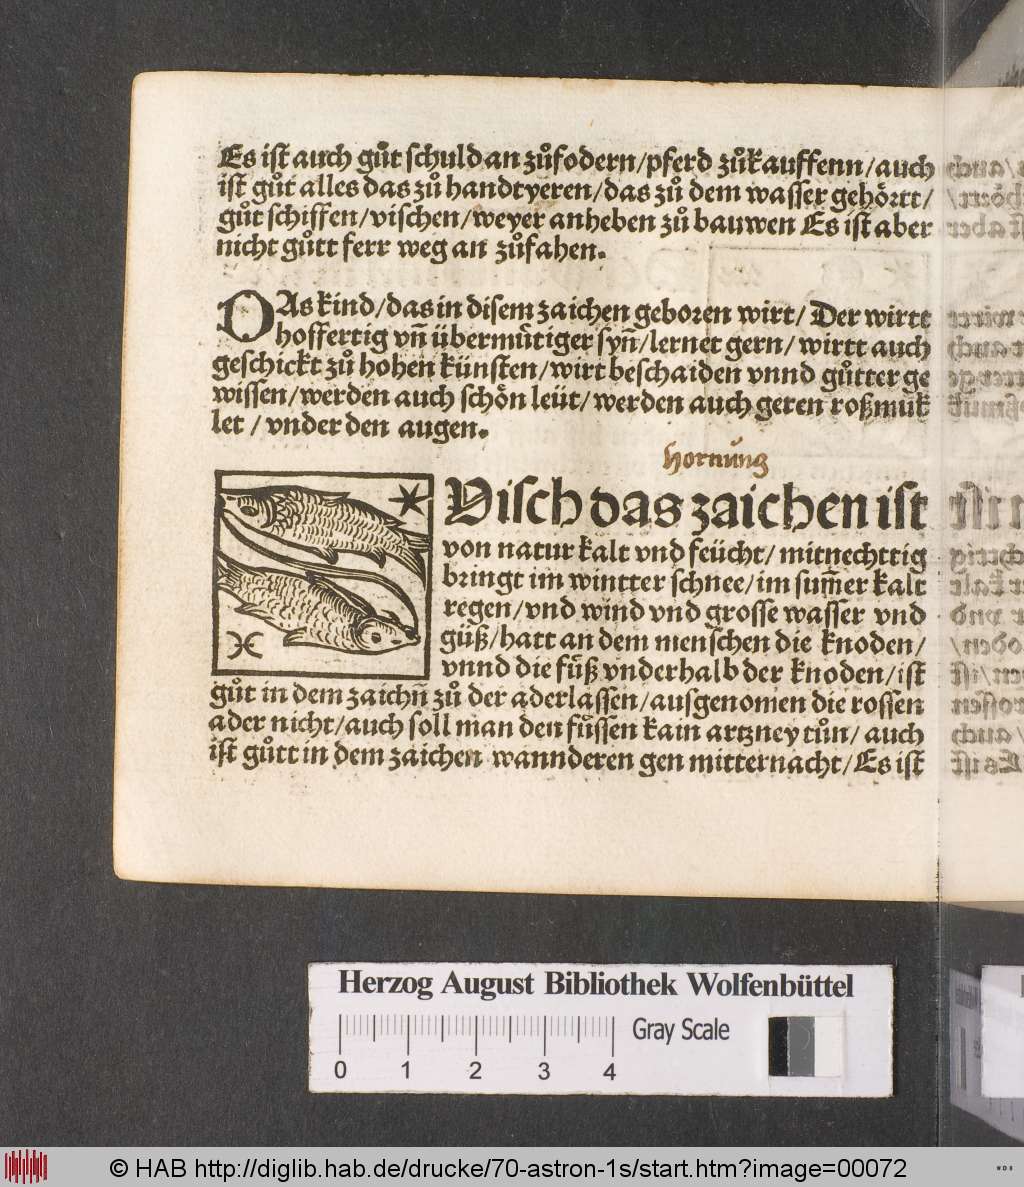 Es ist auch gůt schuld an zůfodern/pferd zůkauffenn/auch
ist gůt alles das zů handtyeren/das zů dem wasser gehörtt/
gůt schiffen/vischen/weyer anheben zů bauwen Es ist aber
nicht gůtt ferr weg an zůfahen.
DAs kind/das in disem zaichen geboren wirt/ Der wirtt
hoffertig vñ übermůtiger syñ/lernet gern/ wirtt auch
geschickt zů hohen künsten/wirt beschaiden vnnd gůtter ge
wissen/werden auch schön leüt/werden auch geren roßmück
let / vnder den augen.
Hornung
Visch das zaichen ist
von natur kalt vnd feücht/ mitnechttig
bringt im wintter schnee/im sum̃er kalt
regen/vnd wind vnd grosse wasser vnd
güß/hatt an dem menschen die knoden/
vnnd die fůß vnderhalb der knoden/ist
gůt in dem zaichñ zů der aderlassen/ausgenomen die rossen
ader nicht/auch soll man den fůssen kain artzney tůn/ auch
ist gůtt in dem zaichen wannderen gen mitternacht/Es ist
Herzog August Bibliothek Wolfenbüttel
Gray Scale
0 1 2 3 4
© HAB http://diglib.hab.de/drucke/70-astron-1s/start.htm?image=00072